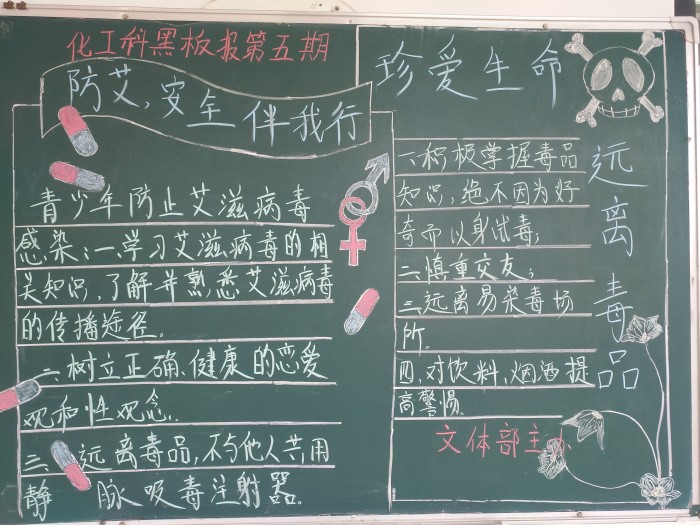 化工科黑板报第五期
防艾,安全伴我行
青少年防止艾滋病毒
感染:一.学习艾滋病毒的相
关知识,了解并熟悉艾滋病毒
的传播途径.
二.树立正确.健康的恋爱
观和性观念.
三.远离毒品,不与他人共用
静脉吸毒注射器.
珍爱生命
远离毒品
一.积极学握毒品
知识,绝不因为好
奇而以身试毒;
二.慎重交友;
三.远离易染毒场
所.
四.对饮料,烟酒提
高警惕.
文体部主办